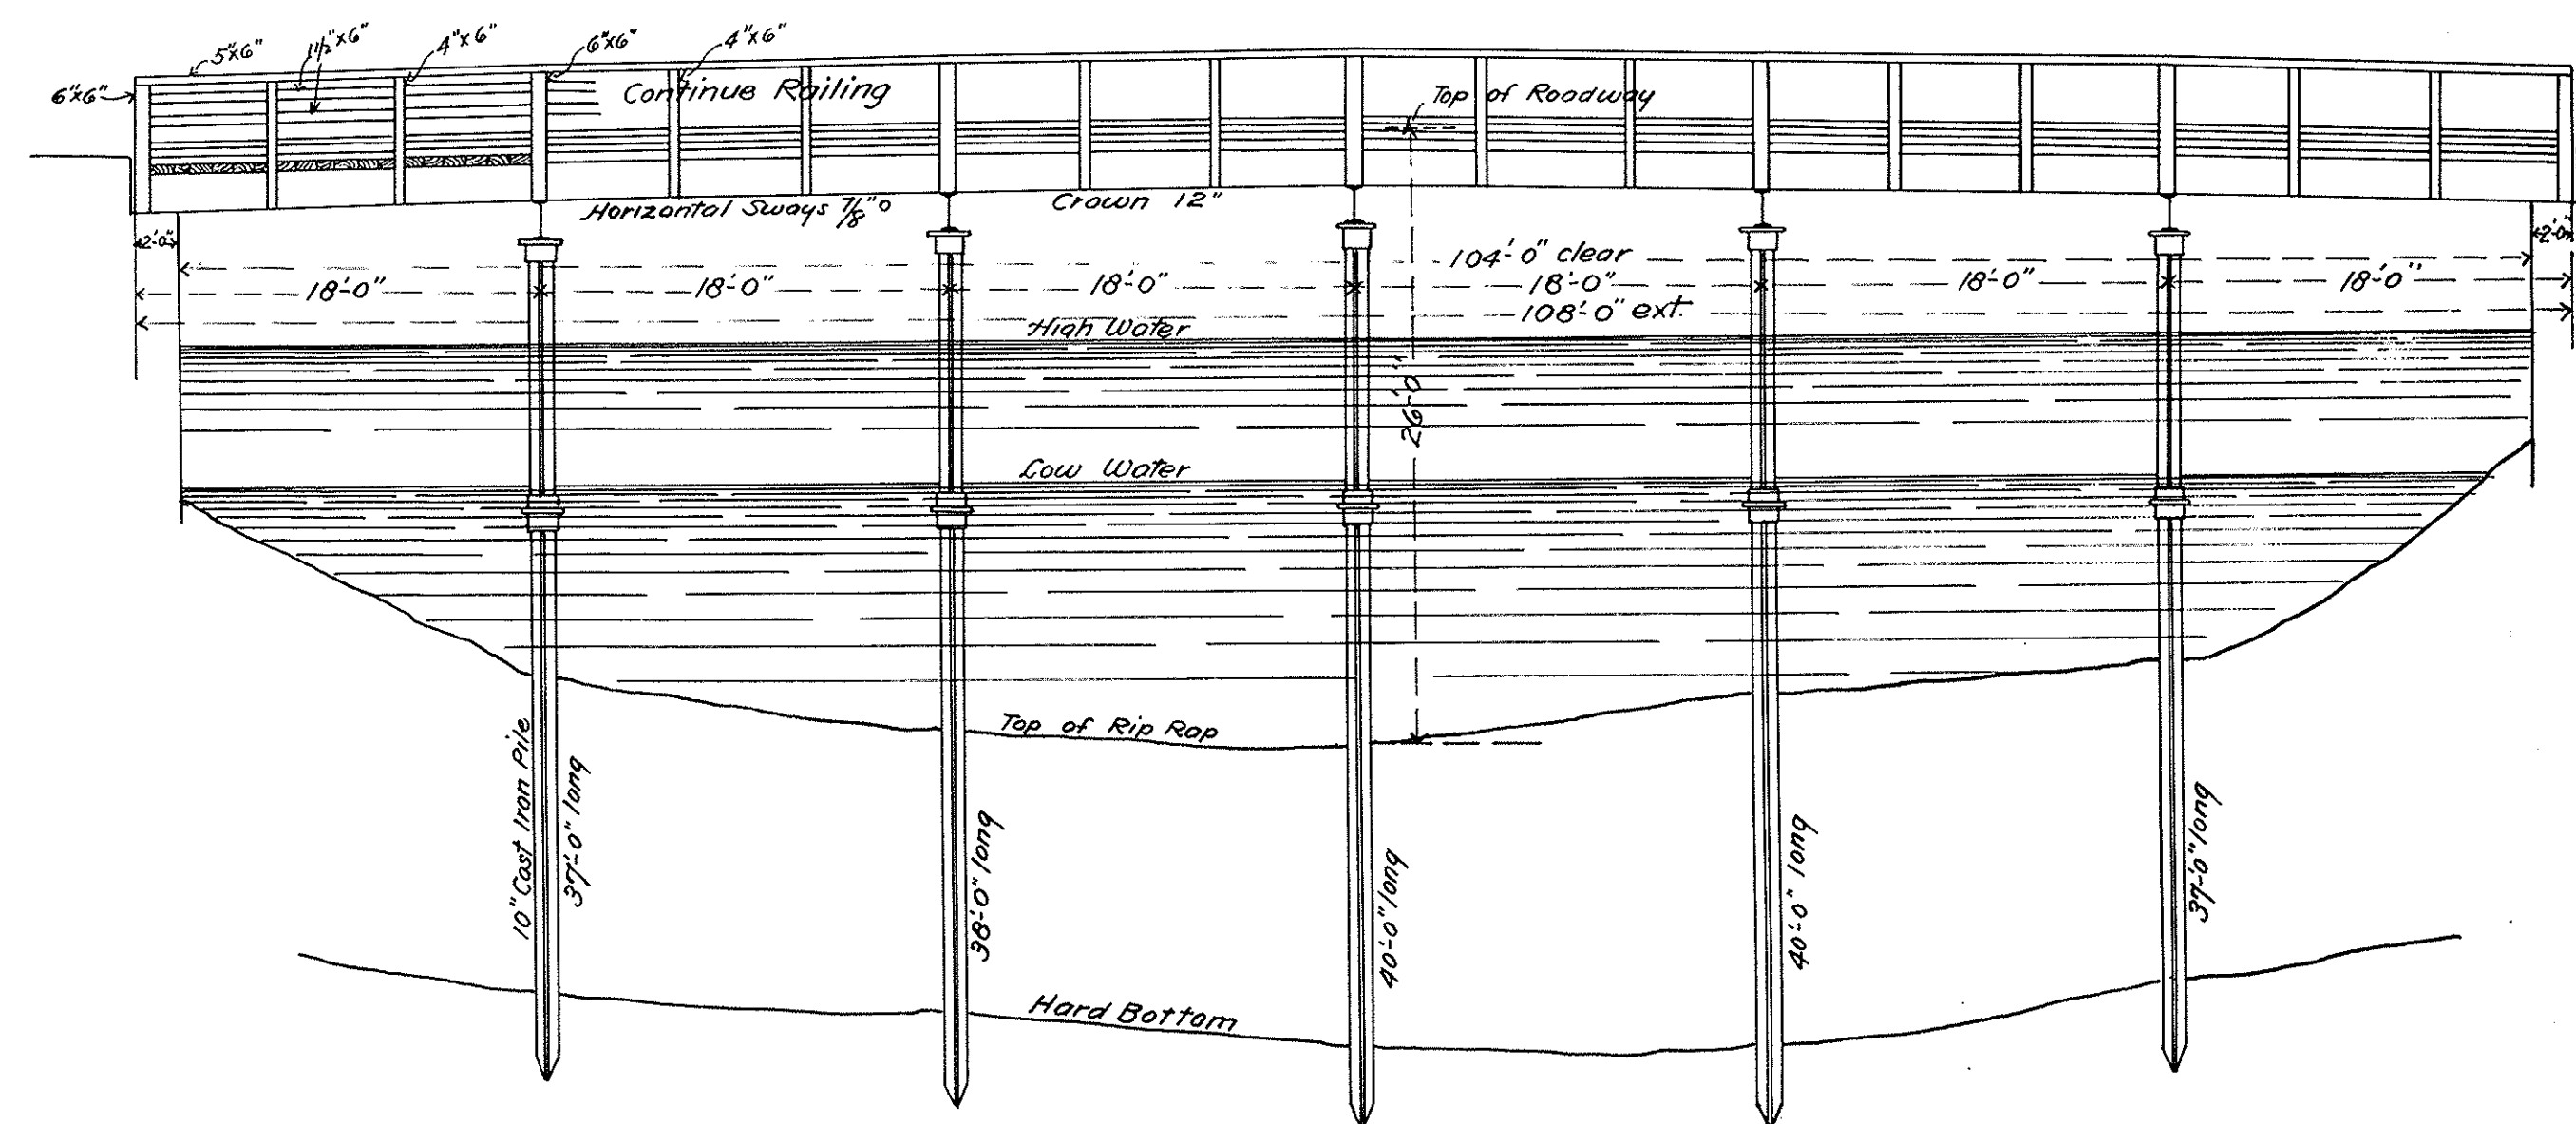 6"x6"
5"x6"
1½"x6"
4"x6"
6"x6"
4"x6"
Continue Railing
Top of Roadway
Horizontal Sways 7/8"o
Crown 12"
2'-0"
104'-0" clear
2'-0"
18'-0"
18'-0"
18'-0"
18'-0"
18'-0"
18'-0"
108'-0" ext.
High Water
26'-0"
Low Water
Top of Rip Rap
10" Cast Iron Pile
37'-0" long
38'-0" long
40'-0" long
40'-0" long
37'-0" long
Hard Bottom